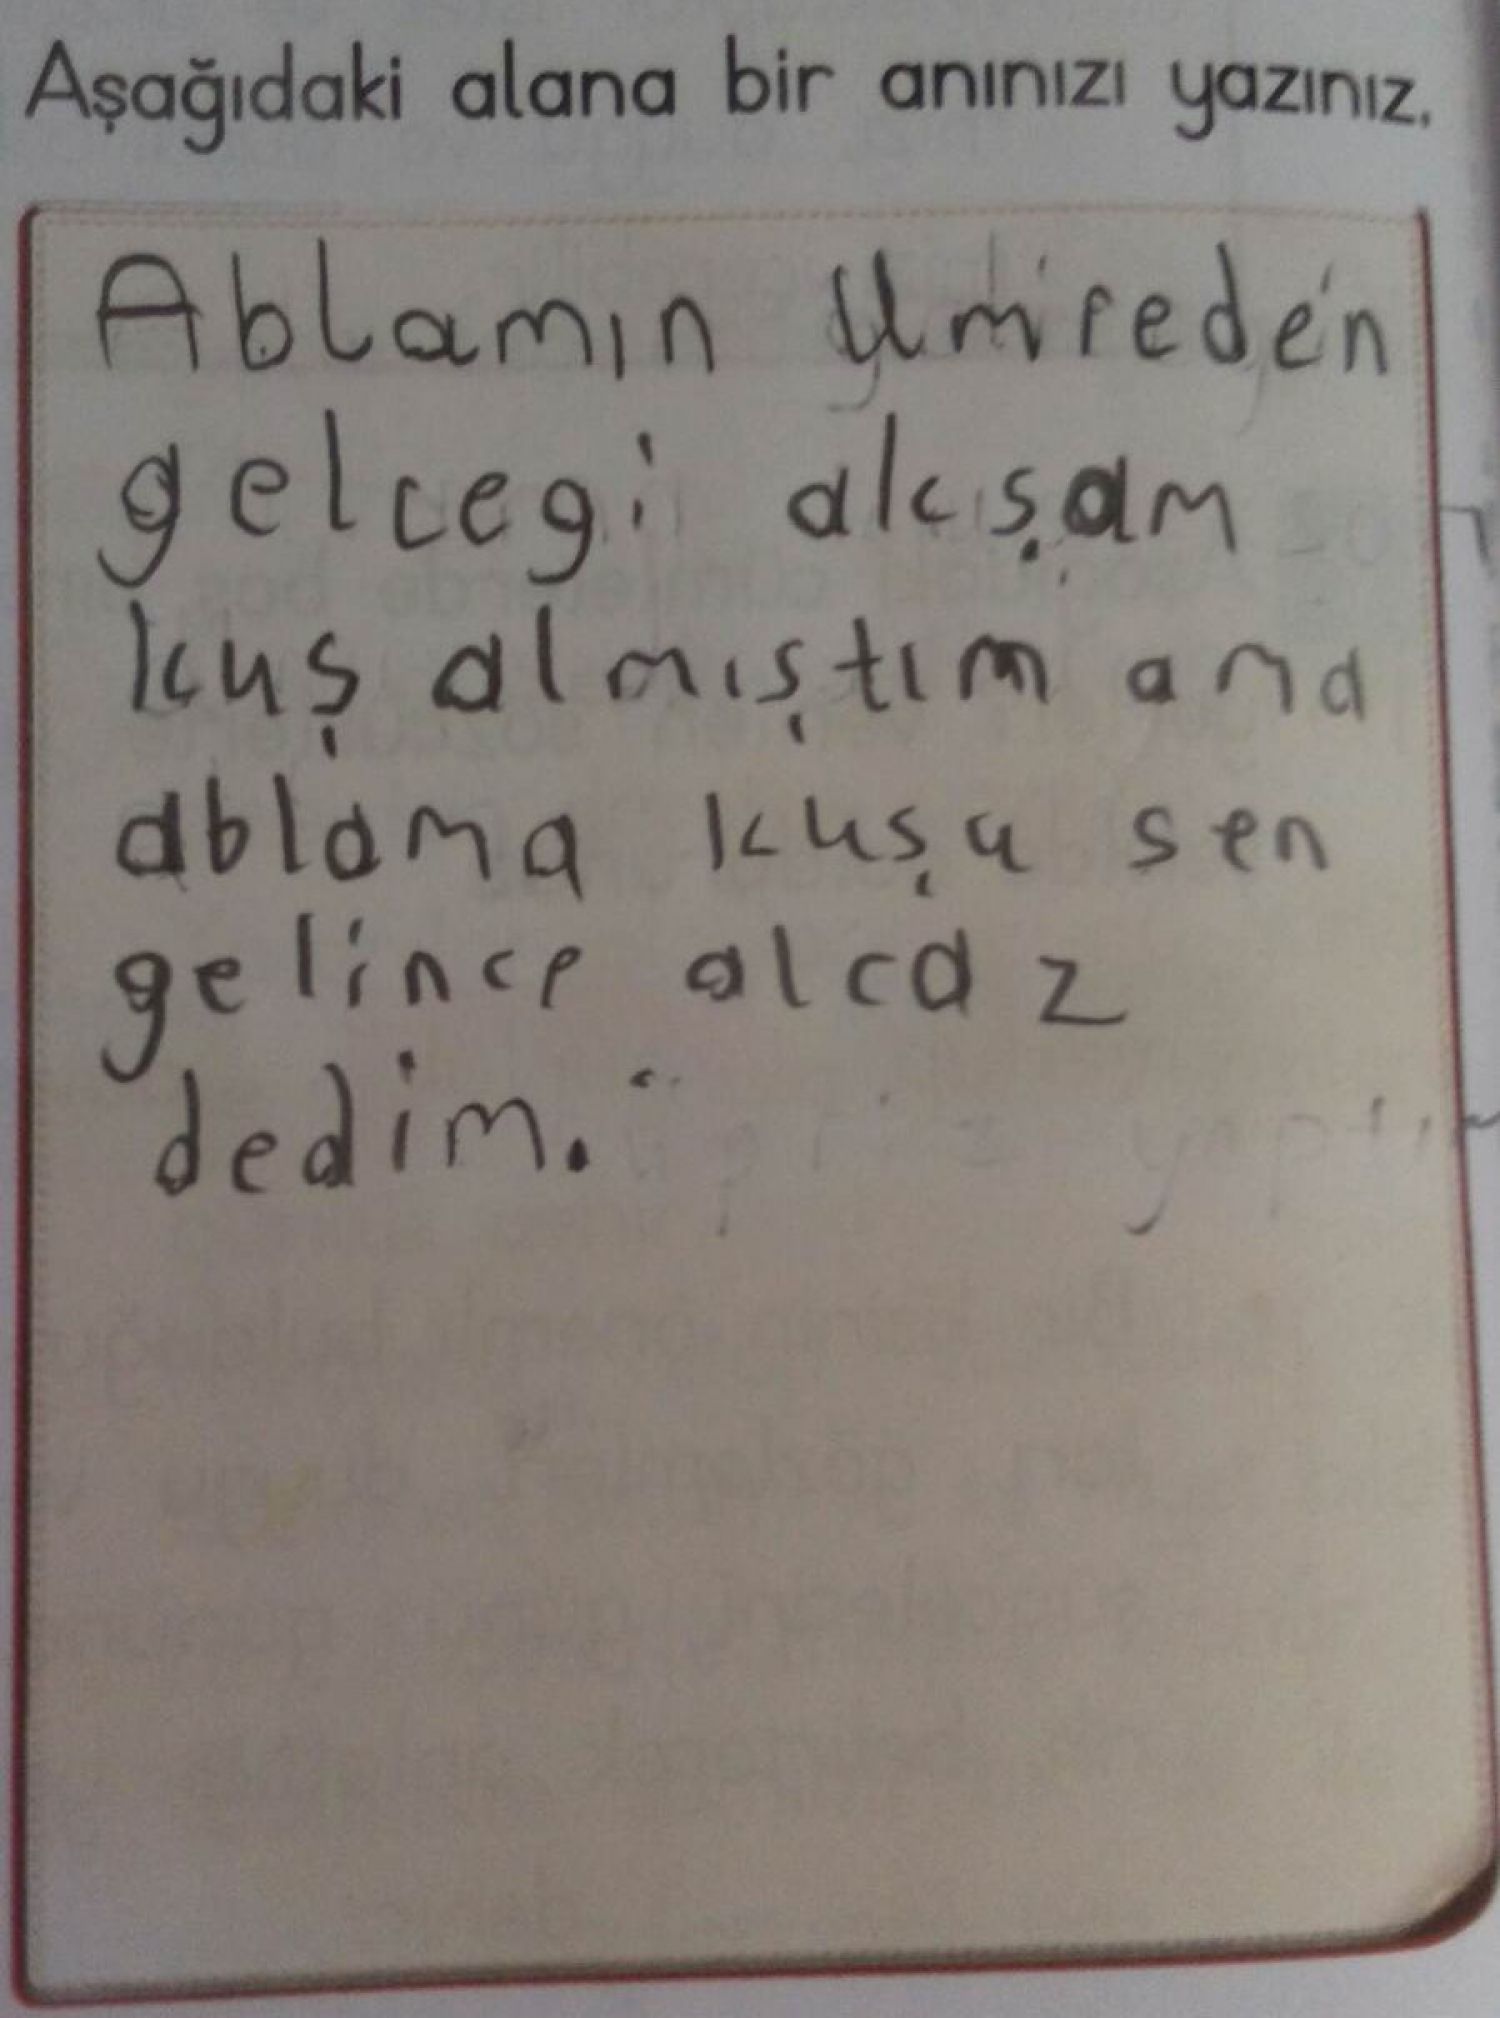 Aşağıdaki alana bir anınızı yazınız.
Ablamın Umireden
gelcegi akşam
kuş almıştım ama
ablama kuşu sen
gelince alcaz
dedim.